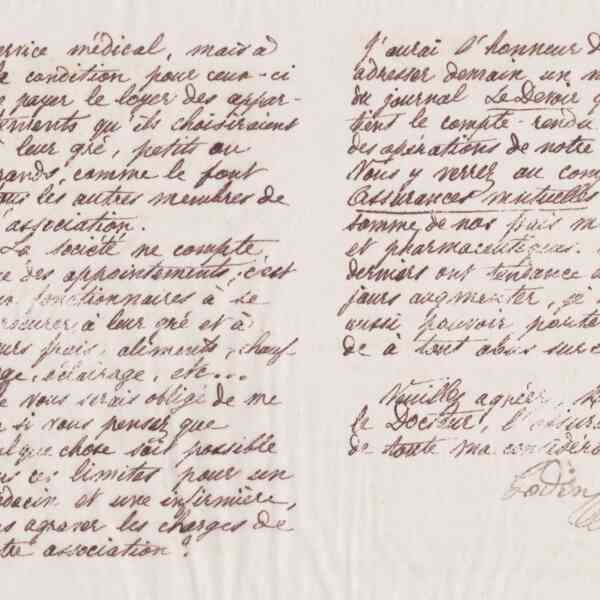 service médical, mais à
la condition pour ceux-ci
payer le loyer des appar-
tements qu'ils choisiraient
à leur gré, petits ou
grands, comme le font
tous les autres membres de
l'association.
La société ne compte
des appointements, c'est
fonctionnaires à se
procurer, à leur gré et à
leurs frais, aliments, chauf-
fage, éclairage, etc...
Je vous serais obligé de me
si vous pensez que
quelque chose soit possible
dans ces limites pour un
médecin et une infirmière,
sans agraver les charges de
notre association ?
J'aurai l'honneur d
adresser demain un n
du journal Le Devoir q
tient le compte-rendu
des opérations de notre
Vous y verrez au com
Assurances mutuelles
somme de nos frais m
et pharmaceutiques.
derniers ont tendance à
jours augmenter, je
aussi pouvoir
de à tout abus sur c
Veuillez agréer, M
le Docteur, l'assura
de toute ma considéra
Godin